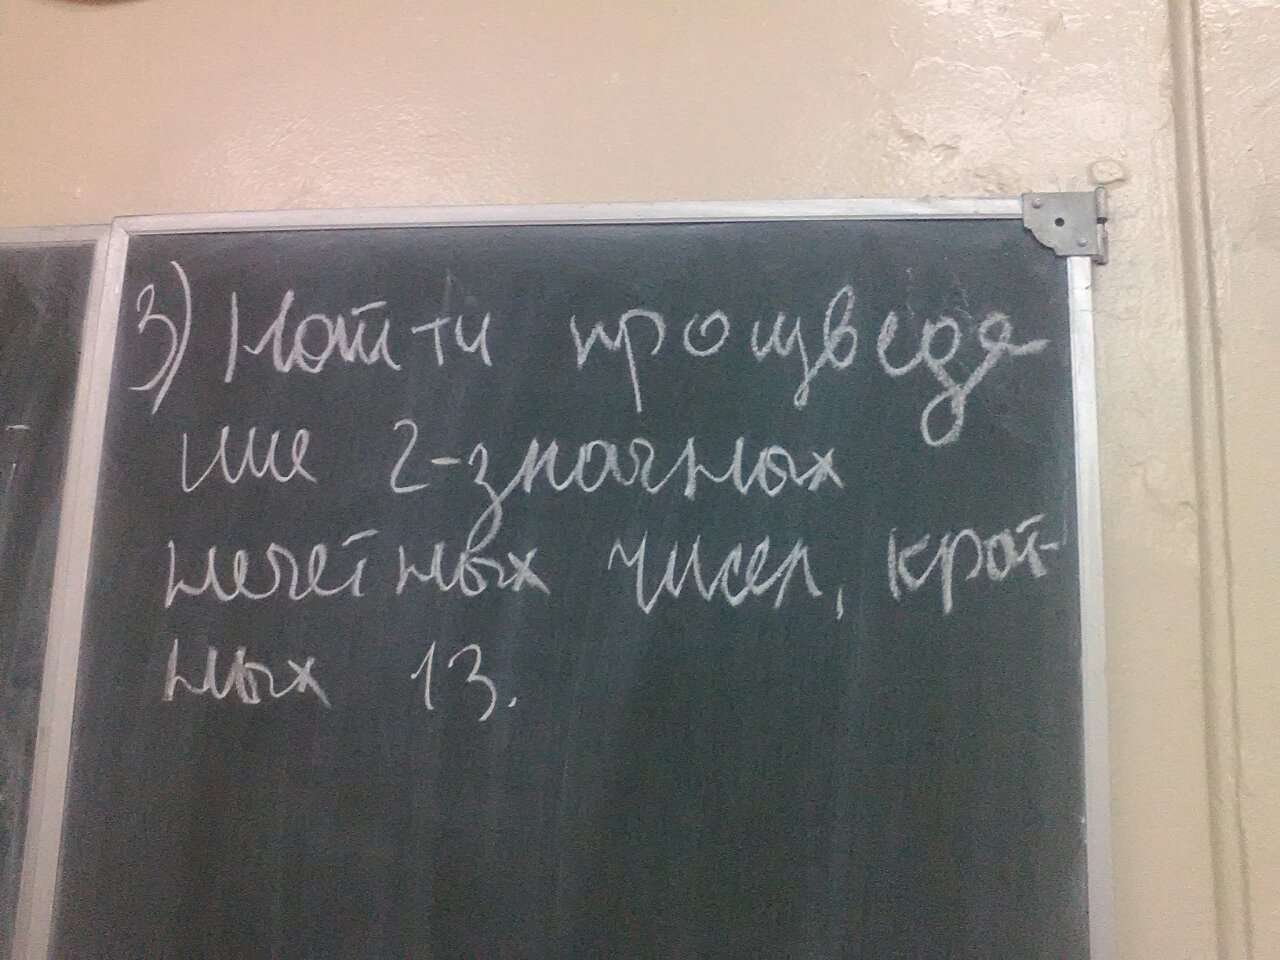 3) Найти произведе
ние 2-значных
нечетных чисел, крат-
ных 13.